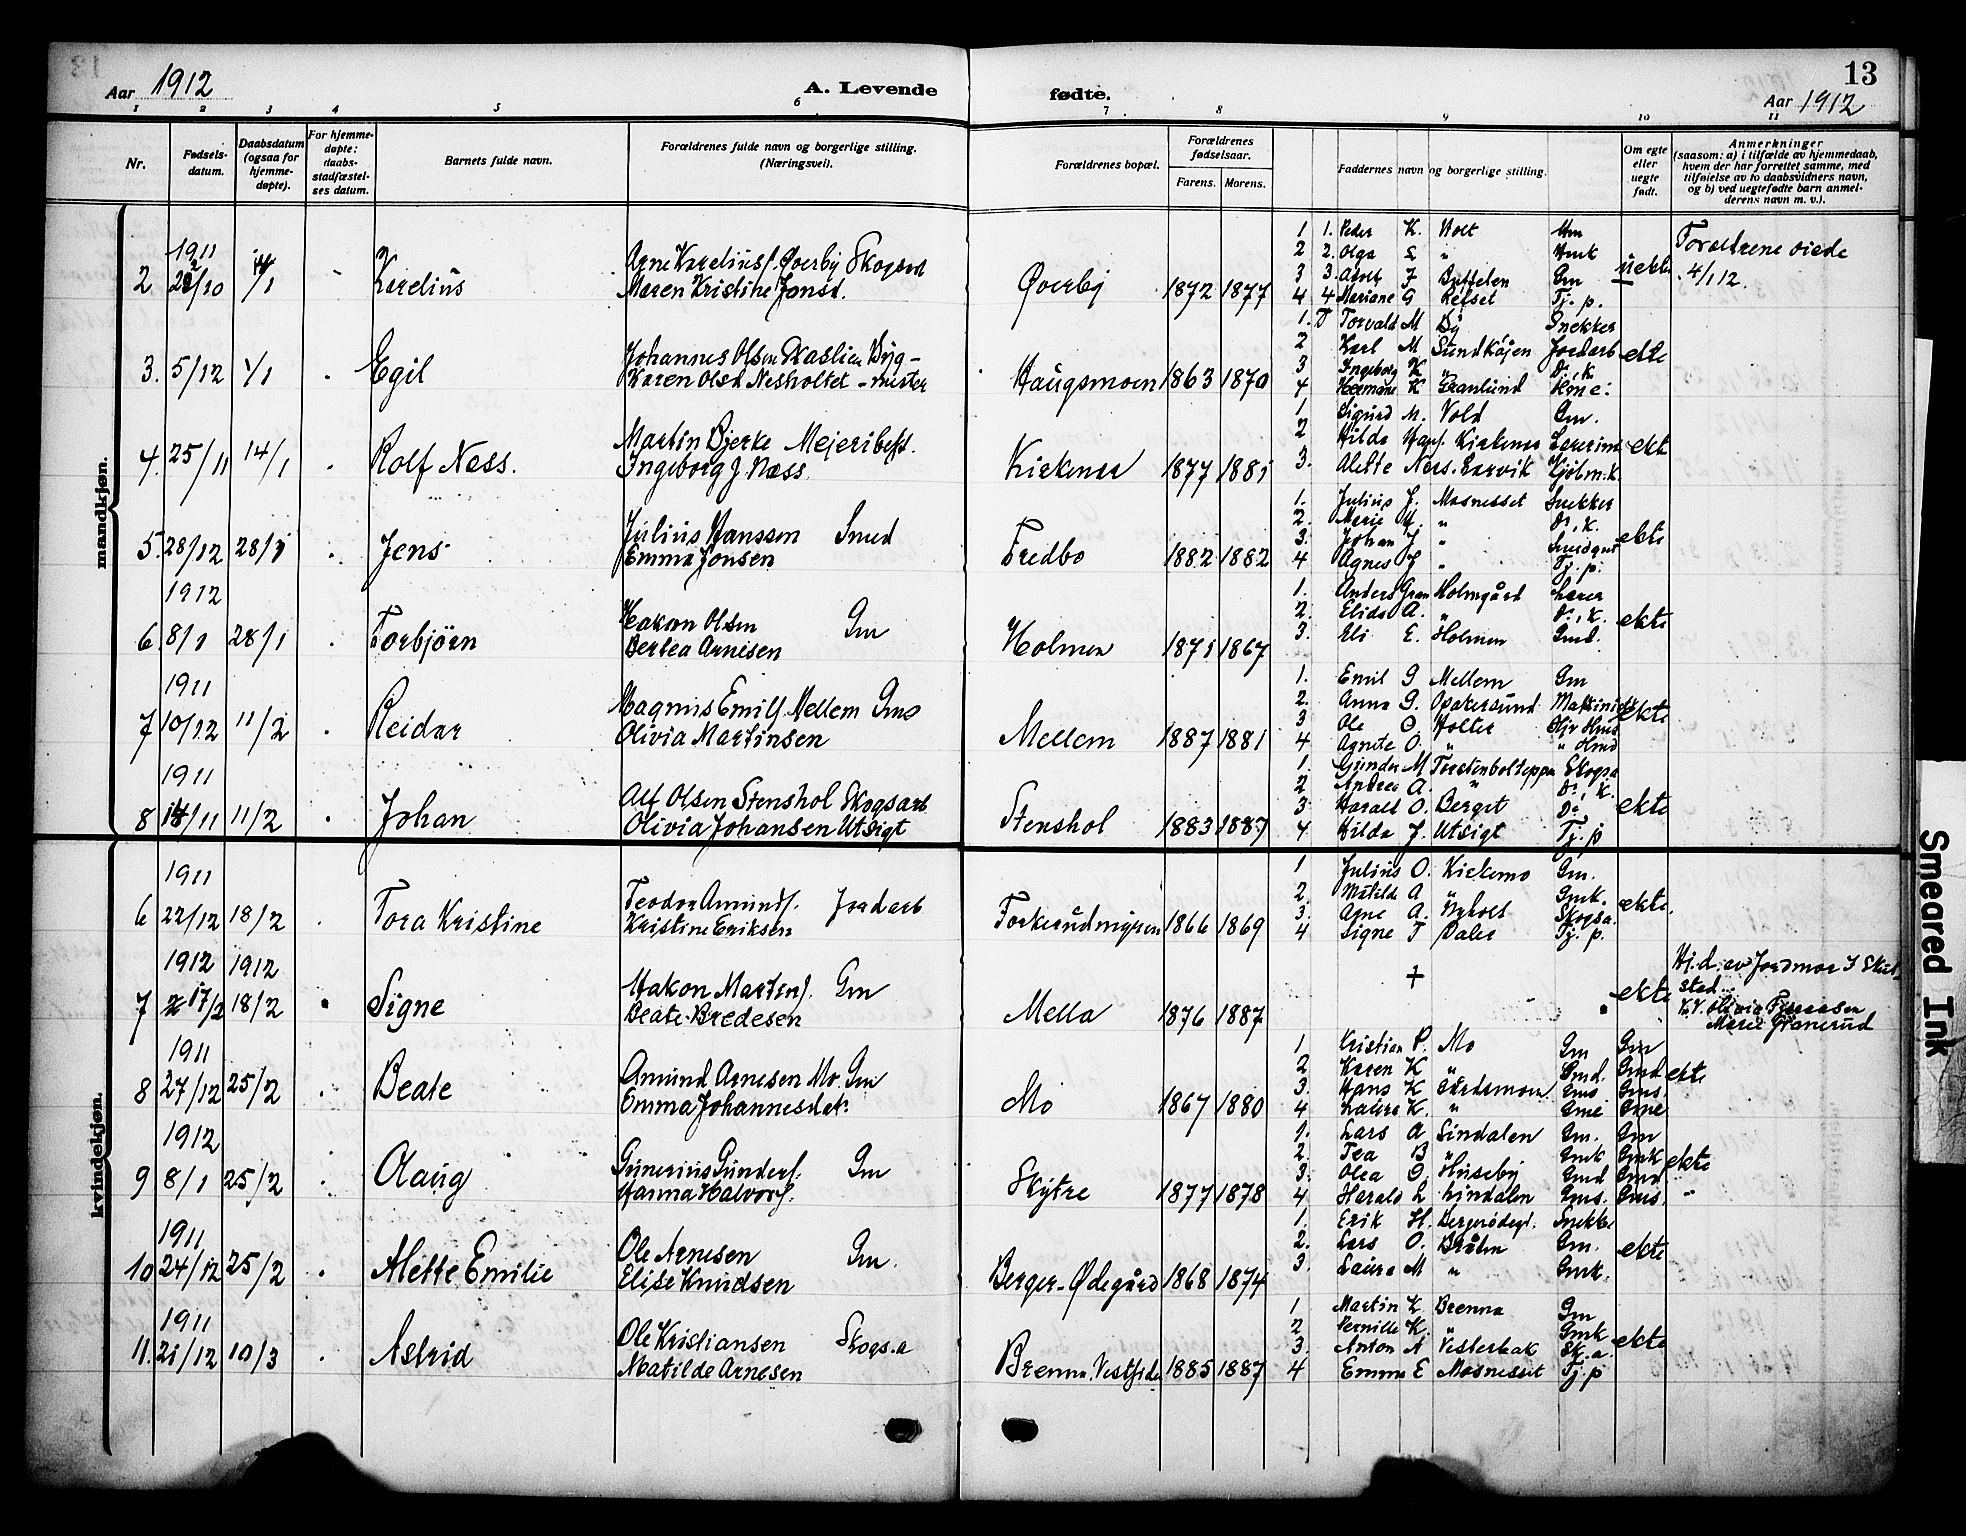 13
Aar 1912
A. Levende fødte.
Aar 1912
1 2 3 4 5 6 7 8 9 10 11
Nr.
Fødsels-
datum.
Daabsdatum
(ogsaa for
hjemme-
døpte).
For hjemme-
døpte:
daabs-
stadfæstel-
ses datum.
Barnets fulde navn.
Forældrenes fulde navn og borgerlige stilling.
(Næringsvei).
Forældrenes bopæl.
Forældrenes
fødselsaar.
Farens. Morens.
Faddernes navn og borgerlige stilling.
Om egte
eller
uegte
født.
Anmerkninger
(saasom: a) i tilfælde av hjemmedaab,
hvem der har forrettet samme, med
tilføielse av to daabsvidners navn,
og b) ved uegtefødte barn anmel-
derens navn m. v.).
mandkjøn.
1911
2 22/10 Karelius
Arne Kareliusf. Øverby Skogsar
Maren Kristine Jonsd.
Øverby 1872 1877
1 1. Peder K. Holt Gm
2 2. Olga
3 3. Adolf J Gm
4 4 Mariane G Refset Tj. p.
uekte
Forældrene viede
4/1 12.
3. 5/12 1/1 Egil
Johannes Olsen Haslien Byg-
Karen Olsd Nesholtet - mester
Haugsmoen 1863 1870
1. Torvald M By Snekker
2 Karl M Sundkøjen Jordarb
3 Ingeborg K " D., K.
4 Hermane K Granlund
ekte
4. 25/11 14/1 Rolf Ness.
Martin Bjerke Meieribest.
Ingeborg J. Næss
Kirkenær 1877 1881
1 Sigurd M. Vold Gm.
2 Hilda Hans. Kirkenær Lærerinde
3. Alette Næs. Larvik
ekte
5. 28/12 28/1 Jens
Julius Hanssen Smed
Emma Jonsen
Fredbo 1882 1882
1. Julius J. Mosnesset Snekker
2. Marie H. " D., K.
3. Johan J "
4 Agnes J " Tj. p.
ekte
1912
6 8/1 28/1 Torbjörn
Hakon Olsen Gm
Bertea Arnesen
Holmen 1871 1867
1. Anders Gran Holmgård Lærer
2. Elida A. " D., K.
3. Eli E. Holmen Gmd.
ekte
1911
7 10/12 11/2 Reidar
Magnus Emilf. Mellem Gms
Olivia Martinsen
Mellem 1887 1881
1. Emil G Mellem Gm
2. Anna G. Opakersund
3 Ole O Holter
4 Agnete O. " "
ekte
1911
8 18/11 11/2 Johan
Alf Olsen Stenshol Skogsarb
Olivia Johansen Utsigt
Stenshol 1883 1887
1. Gunder M Skogsa
2 Andrea A. " D., K.
3. Harald O. Berget Do
4 Hilda J. Utsigt Tj. p
ekte
kvindekjøn.
1911
6 22/12 18/2 Tora Kristine
Teodor Amundf. Jordarb
Kristine Eriksen
Torkerudmyren 1866 1869
1 Julius O. Kirkemo Gm.
2. Matilde A " Gmk.
3. Arne A. Nyholt Skogsa.
4 Signe T Dales Tj. p.
ekte.
1912 1912
7 17/2 18/2 Signe
Hakon Martinf. Gm
Beate Bredesen
Mella 1876 1887
+
ekte
Hj. d. av Jordmor
Marie Granerud
1911
8 27/12 25/2 Beate
Amund Arnesen Mo. Gm
Emma Johannesdat.
Mo 1867 1880
1 Kristian P. Mo Gm Gm
2 Karen K " Gmd. Gmd
3. Hans K Gms Gms.
4 Laura K. " Gme Gme
ekte
1912
9 8/1 25/2 Olaug
Grunerius Gunderf. Gm
Hanna Halvorf.
Skytre 1877 1878
1. Lars A Lindalen Gm. Gm
2. Tea B " Gmk Gmk
3. Olea O Huseby Gmd Gmd
4 Harald L Lindalen Gms. Gms.
ekte
"
1911
10 24/12 25/2 Alette Emilie
Ole Arnesen Gm.
Elise Knudsen
Berger-Ødegård 1868 1874
1. Erik H. Bergerødegd. Snekker
2. Lars O. Bråten Gm.
3. Laura M " Gmk.
ekte
1911
11. 21/12 10/3 Astrid
Ole Kristiansen Skogs.a
Matilde Arnesen
Brenna, Vestside 1885 1887
1 Martin K. Brenna Gm
2 Pernille K. " Gmk
3. Anton A Vesterbak Sk. a
4 Emma E Mosnesset Tj. p
ekte
Smeared Ink